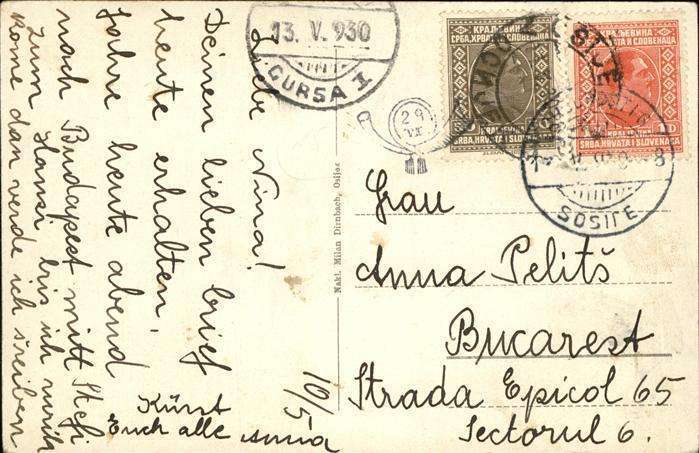 Liebe Nina!
Deinen lieben brief
heute erhalten,
fahre heute abend
nach Budapest mitt Stefi
zum Hansi bis ich
kome dan verde ich šreiben
Küsst
Euch alle
10/5
13. V. 930
CURSA I
29
VI
КРАЉЕВИНА
СРБА, ХРВАТА И СЛОВЕНАЦА
KRALJEVINA
SRBA, HRVATA I SLOVENACA
КРАЉЕВИНА
СРБА, ХРВАТА И СЛОВЕНАЦА
KRALJEVINA
SRBA, HRVATA I SLOVENACA
Nakl. Milan Dirnbach, Osijek
Frau
Anna Pelitš
Bucarest
Strada Epicol 65
Sectorul 6.